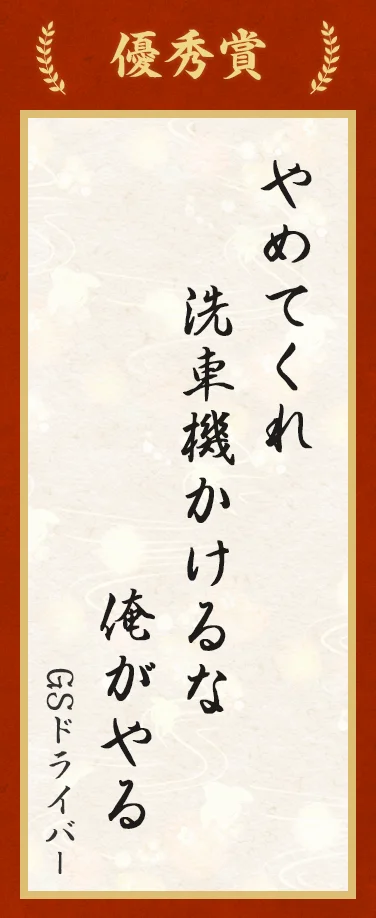 優秀賞
やめてくれ
洗車機かけるな
俺がやる
GSドライバー